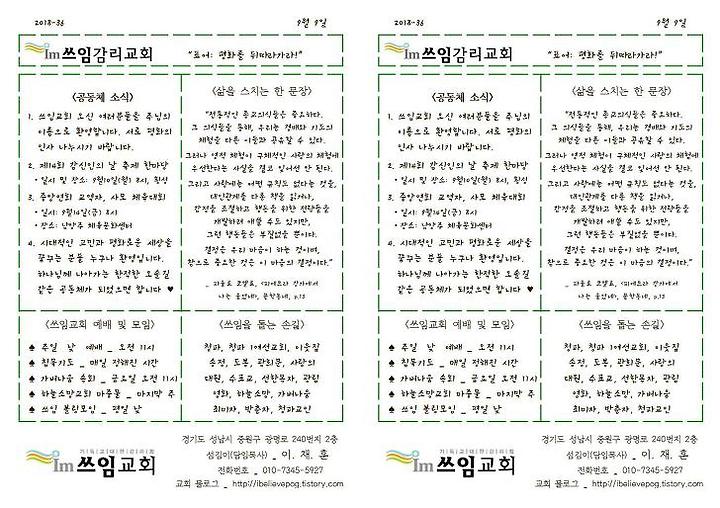 2018-36
9월 9일
Im쓰임감리교회
"표어: 평화를 뒤따라가라!"
<공동체 소식>
1. 쓰임교회 오신 여러분들을 주님의
이름으로 환영합니다. 서로 평화의
인사 나누시기 바랍니다.
2. 제16회 감신인의 날 축제 한마당
• 일시 및 장소: 9월10일(월) 8시, 횡성
3. 중앙연회 교역자, 사모 체육대회
• 일시: 9월14일(금) 8시
• 장소: 남양주 체육문화센터
4. 시대적인 고민과 평화로운 세상을
꿈꾸는 분들 누구나 환영입니다.
하나님께 나아가는 한적한 오솔길
같은 공동체가 되었으면 합니다 ♥
<삶을 스치는 한 문장>
"전통적인 종교의식들은 중요하다.
그 의식들을 통해, 우리는 경배와 기도의
체험을 다른 이들과 공유할 수 있다.
그러나 영적 체험이 구체적인 사랑의 체험에
우선한다는 사실을 결코 잊어선 안 된다.
그리고 사랑에는 어떤 규칙도 없다는 것을,
대인관계를 다룬 책을 읽거나,
감정을 조절하고 행동을 위한 전략들을
개발하려 애쓸 수도 있지만,
그런 행동들은 부질없을 뿐이다.
결정은 우리 마음이 하는 것이며,
참으로 중요한 것은 이 마음의 결정이다."
_ 파울로 코엘료, <피에트라 강가에서
나는 울었네>, 문학동네, p.13
<쓰임교회 예배 및 모임>
♠ 주일 낮 예배 _ 오전 11시
♠ 침묵기도 _ 매일 정해진 시간
♠ 가버나움 속회 _ 금요일 오전 11시
♠ 하늘소망교회 마중물 _ 마지막 주
♠ 쓰임 볼링모임 _ 평일 낮
<쓰임을 돕는 손길>
청파, 청파 1여선교회, 이웃집
송정, 도봉, 광희문, 사랑의
대원, 수표교, 선한목자, 광림
영화, 하늘소망, 가버나움
최미자, 박춘자, 청파교인
기독교대한감리회
Im쓰임교회
경기도 성남시 중원구 광명로 240번지 2층
섬김이(담임목사) _ 이. 재. 훈
전화번호 _ 010-7345-5927
교회 블로그 _ http://ibelievepog.tistory.com
2018-36
9월 9일
Im쓰임감리교회
"표어: 평화를 뒤따라가라!"
<공동체 소식>
1. 쓰임교회 오신 여러분들을 주님의
이름으로 환영합니다. 서로 평화의
인사 나누시기 바랍니다.
2. 제16회 감신인의 날 축제 한마당
• 일시 및 장소: 9월10일(월) 8시, 횡성
3. 중앙연회 교역자, 사모 체육대회
• 일시: 9월14일(금) 8시
• 장소: 남양주 체육문화센터
4. 시대적인 고민과 평화로운 세상을
꿈꾸는 분들 누구나 환영입니다.
하나님께 나아가는 한적한 오솔길
같은 공동체가 되었으면 합니다 ♥
<삶을 스치는 한 문장>
"전통적인 종교의식들은 중요하다.
그 의식들을 통해, 우리는 경배와 기도의
체험을 다른 이들과 공유할 수 있다.
그러나 영적 체험이 구체적인 사랑의 체험에
우선한다는 사실을 결코 잊어선 안 된다.
그리고 사랑에는 어떤 규칙도 없다는 것을,
대인관계를 다룬 책을 읽거나,
감정을 조절하고 행동을 위한 전략들을
개발하려 애쓸 수도 있지만,
그런 행동들은 부질없을 뿐이다.
결정은 우리 마음이 하는 것이며,
참으로 중요한 것은 이 마음의 결정이다."
_ 파울로 코엘료, <피에트라 강가에서
나는 울었네>, 문학동네, p.13
<쓰임교회 예배 및 모임>
♠ 주일 낮 예배 _ 오전 11시
♠ 침묵기도 _ 매일 정해진 시간
♠ 가버나움 속회 _ 금요일 오전 11시
♠ 하늘소망교회 마중물 _ 마지막 주
♠ 쓰임 볼링모임 _ 평일 낮
<쓰임을 돕는 손길>
청파, 청파 1여선교회, 이웃집
송정, 도봉, 광희문, 사랑의
대원, 수표교, 선한목자, 광림
영화, 하늘소망, 가버나움
최미자, 박춘자, 청파교인
기독교대한감리회
Im쓰임교회
경기도 성남시 중원구 광명로 240번지 2층
섬김이(담임목사) _ 이. 재. 훈
전화번호 _ 010-7345-5927
교회 블로그 _ http://ibelievepog.tistory.com